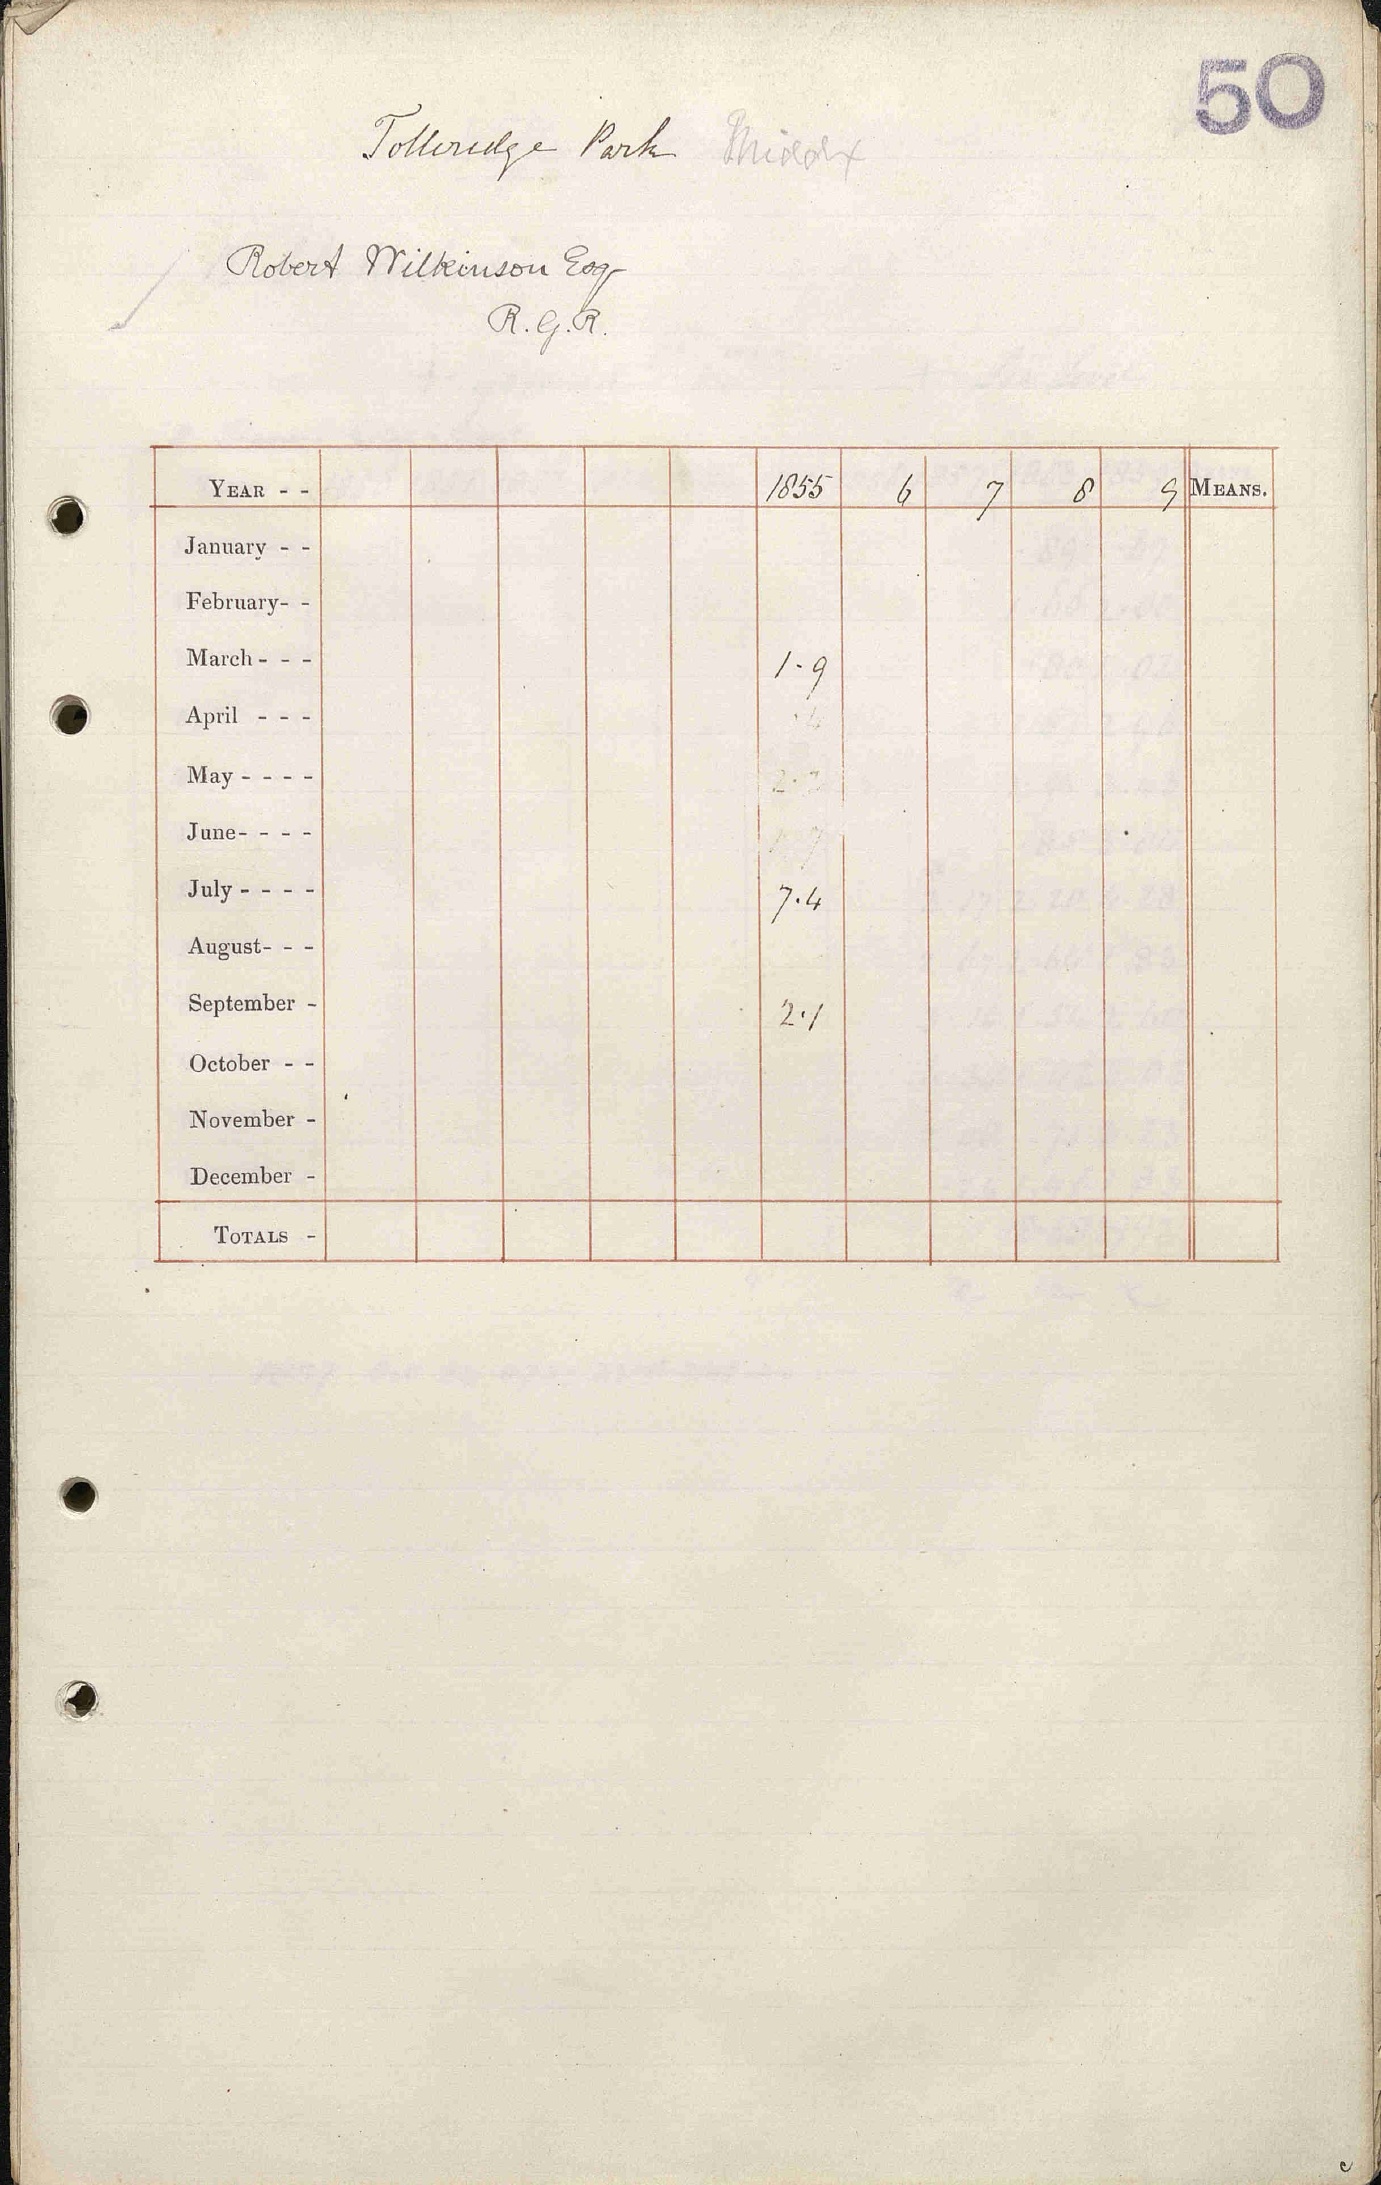 50
Totteridge Park Middx
Robert Wilkinson Esq
R. G. R.
YEAR - - 1855 6 7 8 9 MEANS.
January - -
February- -
March - - - 1.9
April - - - .4
May - - - -
June- - - -
July - - - - 7.4
August- - -
September - 2.1
October - -
November -
December -
TOTALS -